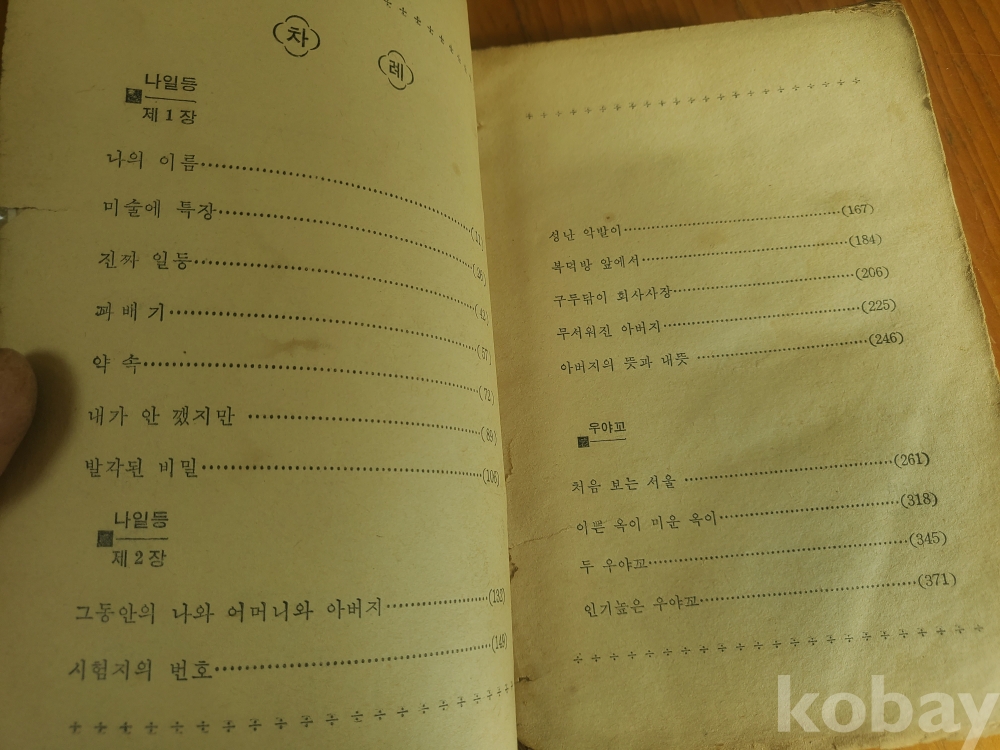 차례
나일등
제 1 장
나의 이름(11)
미술에 특장(26)
진짜 일등(42)
꽈배기(57)
약 속(72)
내가 안 깼지만(89)
발각된 비밀(106)
나일등
제 2 장
그동안의 나와 어머니와 아버지(132)
시험지의 번호(149)
성난 악받이(167)
복덕방 앞에서(184)
구두닦이 회사사장(206)
무서워진 아버지(225)
아버지의 뜻과 내뜻(246)
우야꼬
처음 보는 서울(261)
이쁜 옥이 미운 옥이(318)
두 우야꼬(345)
인기높은 우야꼬(371)
kobay